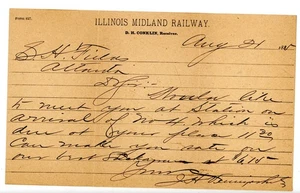 ILLINOIS MIDLAND RAILWAY.
D. H. CONKLIN, Receiver.
Aug 21
Atlanta
D Sir:-
Would like
to meet you at Station on
arrival of No 4 which is
due at your place 11 30
Can make you rate on
our best at $ 6 15
Yours